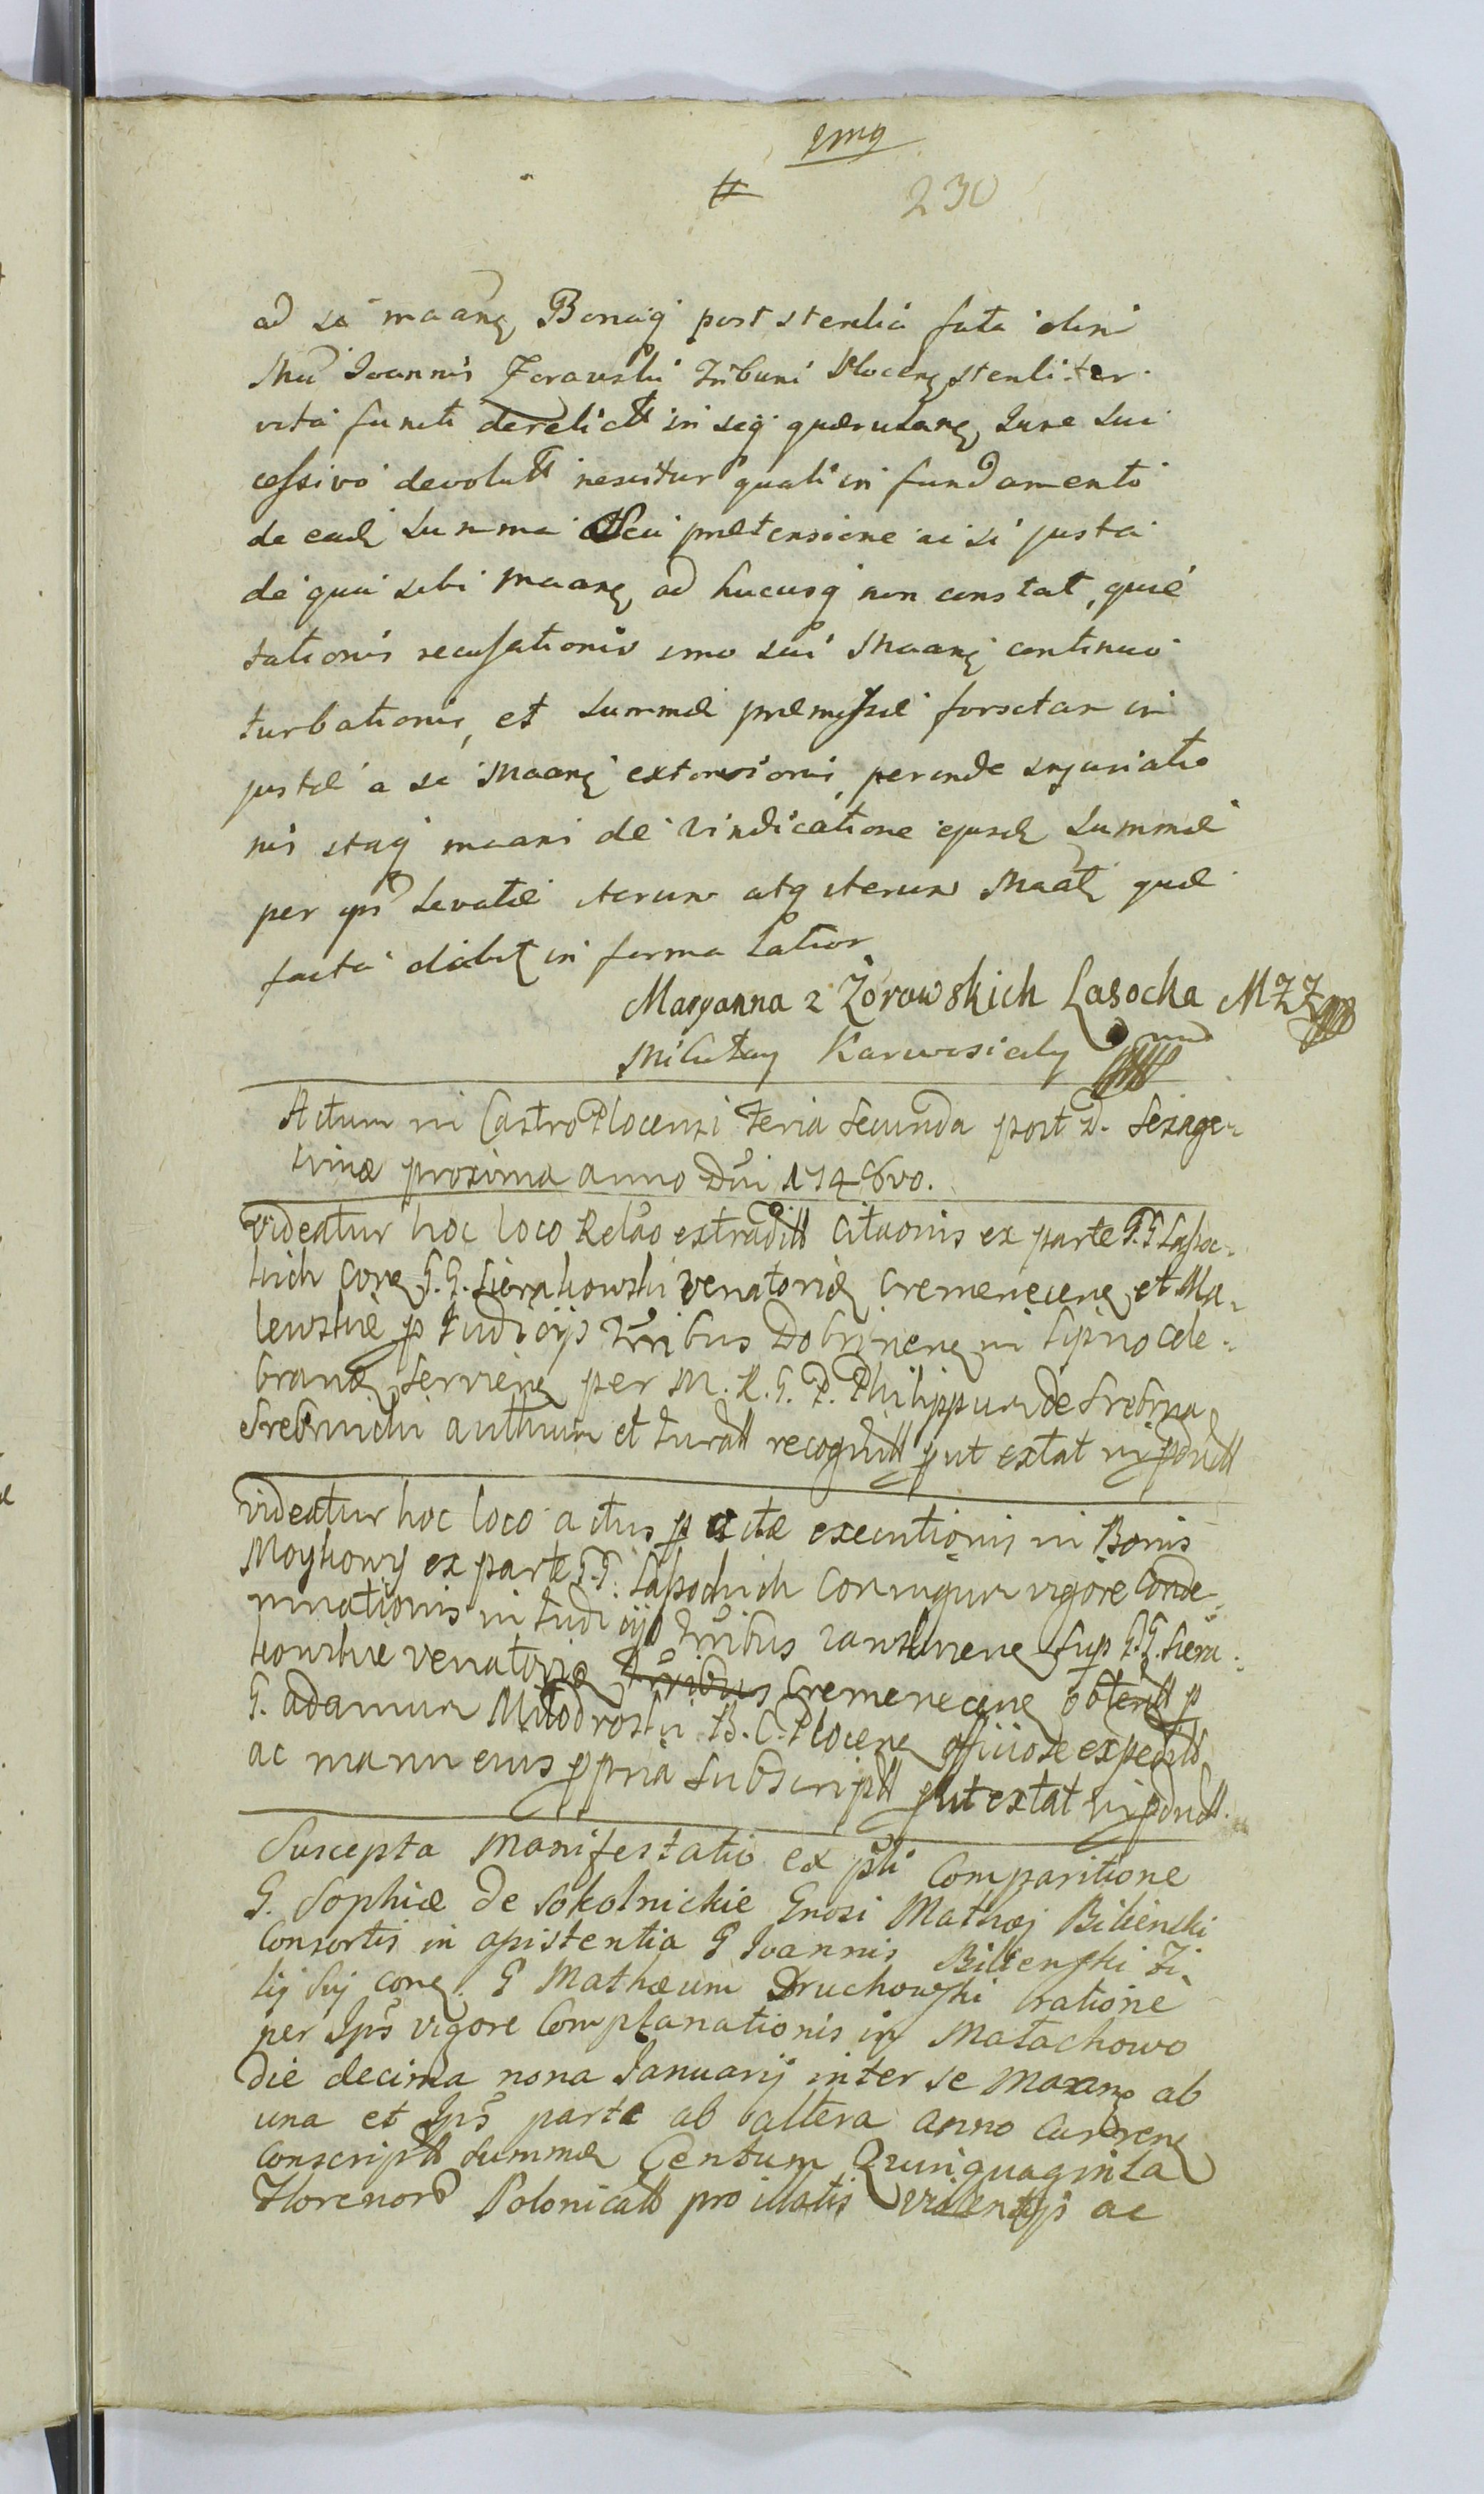 img
230
ad se maang Bonaq post sterilia fata olim
Mci Joannis Żorawski Tribuni Plocen steriliter
vita functi derelicta in seq querulang Jure Suc
cessivo devoluta nescitur quali in fundamento
de ead Summa Seu prætensione ac si justa
de qua sibi maang ad hucusq non constat, quie
tationis recusationis imo sui Maang continuo
turbationis, et Summæ præmissæ forsitan in
justæ a se Maang extorsionis perinde injuriatio
nis itaq maans de vindicatione ejusd Summæ
per ips Levatæ iterum atq iterum Maatq quæ
facta diabit in forma Latior
Maryanna z Żorowskich Lasocka MZZ
Mikołay Karwosiecky mp
Actum in Castro Plocensi Feria Secunda post D. Sexage-
simæ proxima anno Dni 1746to.
Videatur hoc loco Relao extradit Citaonis ex parte G.G Lasoc-
kich Con G.G. Sierakowski Venatoriq Cremenecen et Ma-
lewskie p Judicijs Trribus Dobrinen in Lipno cele-
brand Servien per M. R. G. D. Philippum de Srebrna
Srebrnicki authum et Jurat recognit put extat in pduct
Videatur hoc loco actus p citæ executionis in Bonis
Moykowy ex parte G.G. Lasockich Conjugum vigore Conde-
mnationis in Judicijs Trribus Zawskrinen Sup G.G. Siera-
kowskie Venatoriq Trribus Cremenecen obtent p
G. adamum Modroski B. C. Plocen officiose expedit
ac manu eius ppria Subscript put extat in pduct.
Suscepta Manifestatio ex psli Comparitione
G. Sophiæ de Sokolnickie Gnosi Mathæj Bilienski
Consortis in asistentia G Joannis Bilienski Fi-
lij Sui con. G Mathæum Druchowski ratione
per Ips vigore Complanationis in Małachowo
die decima nona Januarij inter se Maang ab
una et Ips parte ab altera anno Curren
Conscript Summæ Centum Quinquaginta
Florenor Polonicall pro illatis violentijs ac